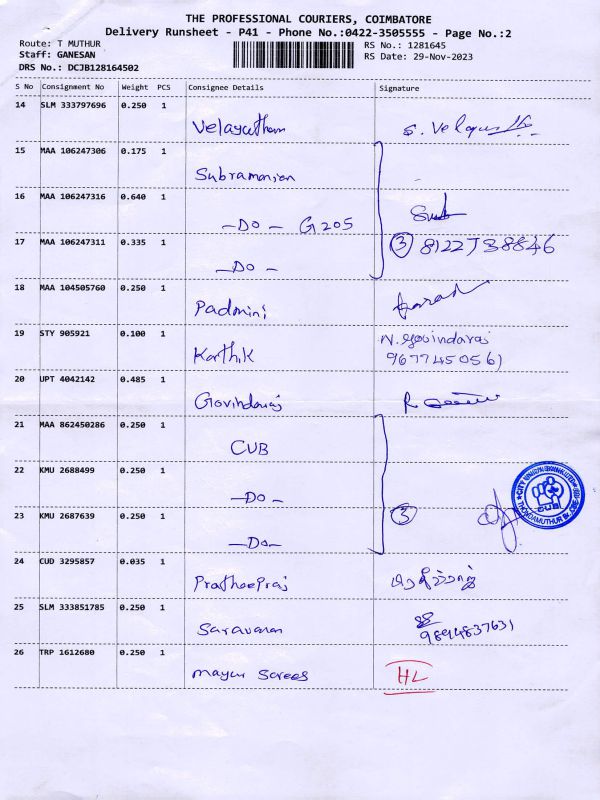 THE PROFESSIONAL COURIERS, COIMBATORE
Delivery Runsheet - P41 - Phone No.:0422-3505555 - Page No.:2
Route: T MUTHUR RS No.: 1281645
Staff: GANESAN RS Date: 29-Nov-2023
DRS No.: DCJB128164502
S No Consignment No Weight PCS Consignee Details Signature
14 SLM 333797696 0.250 1
Velayutham S. Velayu
15 MAA 106247306 0.175 1
Subramanian
16 MAA 106247316 0.640 1
-Do- G205 Sub
17 MAA 106247311 0.335 1 ③ 8122738846
-Do-
18 MAA 104505760 0.250 1
Padmini
19 STY 905921 0.100 1 N. Govindaraj
Karthik 9677450561
20 UPT 4042142 0.485 1
Govindaraj R
21 MAA 862450286 0.250 1
CUB
22 KMU 2688499 0.250 1
-Do-
23 KMU 2687639 0.250 1 ③
-Do-
CUB
24 CUD 3295857 0.035 1
Pratheepraj
25 SLM 333851785 0.250 1
Saravanan 9894837631
26 TRP 1612680 0.250 1
Mayur Sarees HL